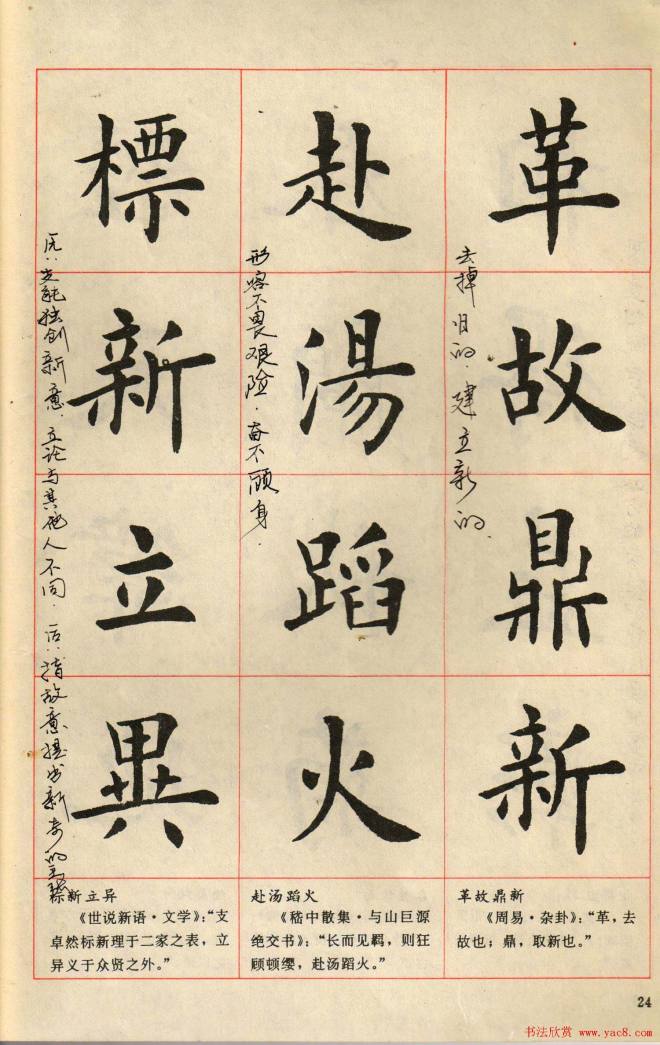 革故鼎新
去掉旧的．建立新的．
赴湯蹈火
形容不畏艰险．奋不顾身．
標新立異
立论与其他人不同．
革故鼎新
《周易·杂卦》：“革，去
故也；鼎，取新也。”
赴汤蹈火
《嵇中散集·与山巨源
绝交书》：“长而见羁，则狂
顾顿缨，赴汤蹈火。”
标新立异
《世说新语·文学》：“支
卓然标新理于二家之表，立
异义于众贤之外。”
24
书法欣赏 www.yac8.com